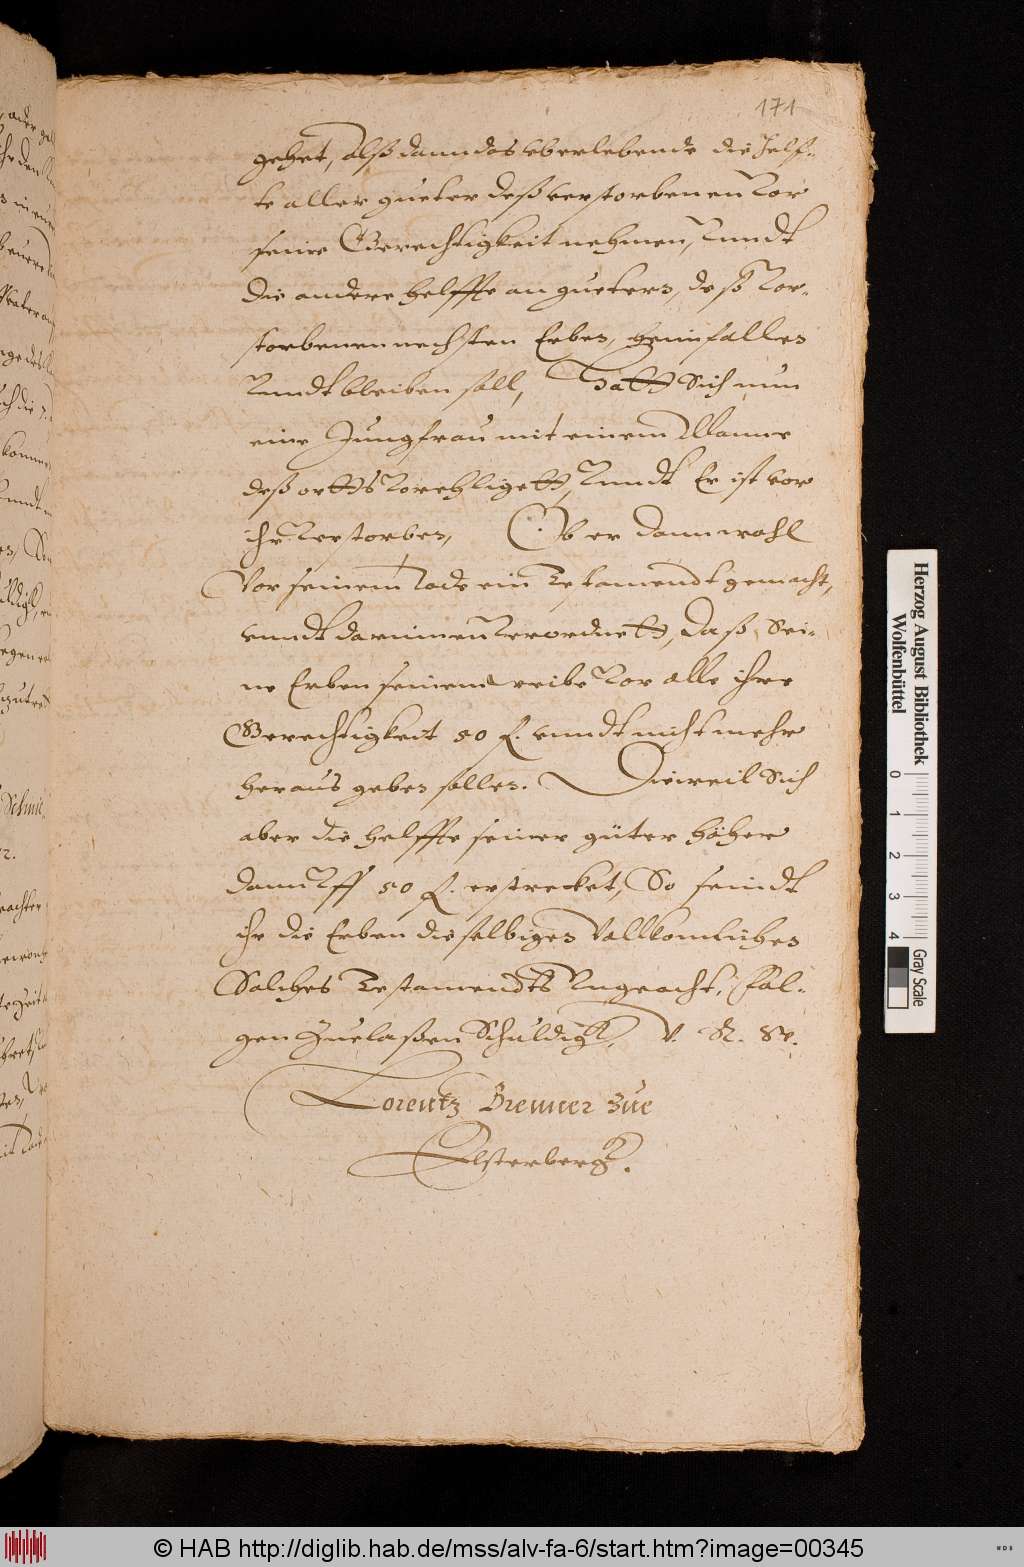 171
gehet, alß dann das vberlebende die Helf-
te aller gueter deß verstorbenen vor
seine Gerechtigkeit nehmen, vnndt
die andere helffte an guetern, deß vor-
storbenen nechsten Erben, heimfallen
vnndt bleiben soll, Hatt sich nun
eine Jungfrau mit einem Manne
deß ortts vorehligett, vnndt Er ist vor
ihr verstorben, Ob er dann wohl
Vor seinem tode ein Testamendt gemacht,
vnndt darinnen verordnett, daß Sei-
ne Erben seinem weibe vor alle ihre
Gerechtigkeit 50 f. vnndt nicht mehr
heraus geben sollen. Dieweil sich
aber die helffte seiner güter höher
dann vff 50 f. erstrecket, So seindt
ihr die Erben dieselbigen Vollkömlichen
Solches Testamendts vngeacht, fol-
gen Zuelaßen Schuldigk, V. R. W.
Lorentz Brenner zue
Elsterbergk.
Herzog August Bibliothek
Wolfenbüttel
0 1 2 3 4
Gray Scale
© HAB http://diglib.hab.de/mss/alv-fa-6/start.htm?image=00345